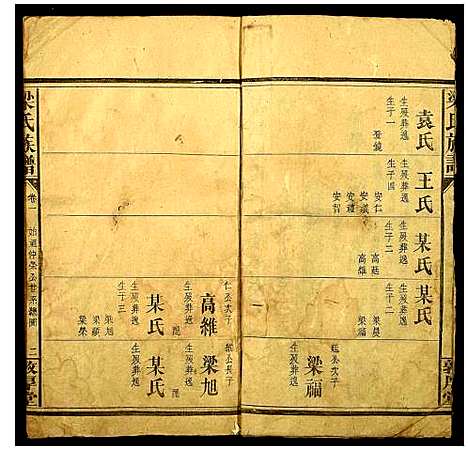 梁氏族譜
袁氏
生歿葬逸
生子一
王氏
生歿葬逸
生子四
安仁
安義
安禮
安智
某氏
生歿葬逸
生子二
高廷
高維
某氏
生歿葬逸
生子二
梁晨
梁福
敦厚堂
梁福
生歿葬逸
仁公次子
高維
生歿葬逸
某氏
生歿葬逸
生子三
梁旭
梁顯
梁榮
梁旭
生歿葬逸
某氏
梁氏族譜
卷一
始祖仲
公世系總圖
二
敦厚堂